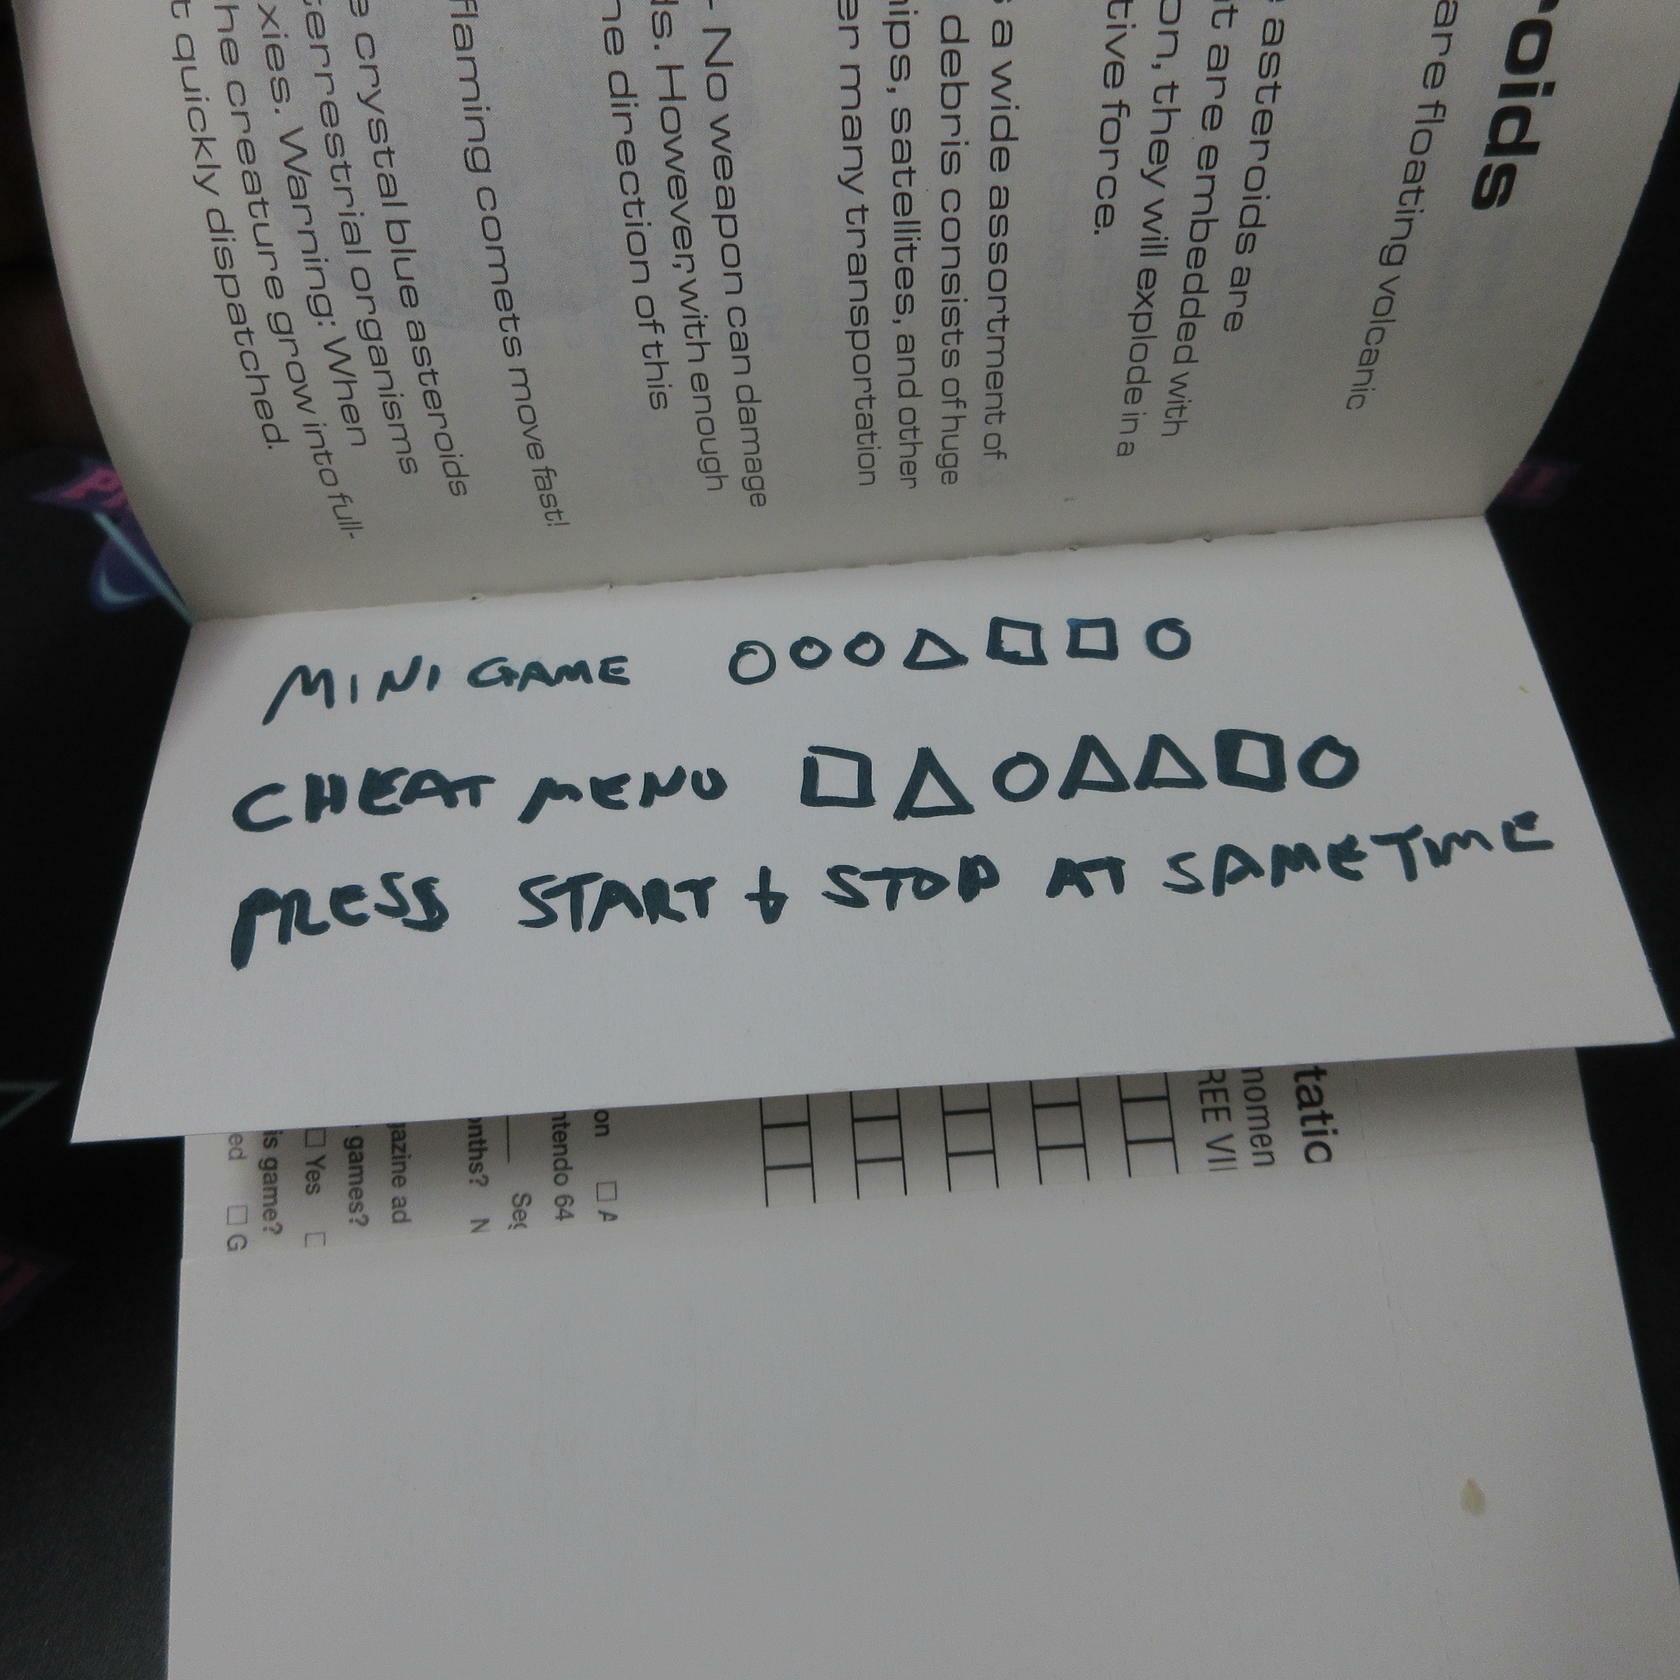 MINI GAME ○○○△□□○
CHEAT MENU □△○△△□○
PRESS START + STOP AT SAME TIME
roids
are floating volcanic
asteroids are
t are embedded with
on, they will explode in a
tive force.
s a wide assortment of
debris consists of huge
hips, satellites, and other
er many transportation
- No weapon can damage
ds. However, with enough
he direction of this
flaming comets move fast!
e crystal blue asteroids
terrestrial organisms
xies. Warning: When
he creature grow into full-
t quickly dispatched.
tatic
nomen
REE VI
on □ A
ntendo 64
Seg
onths? N
gazine ad
games?
□ Yes □
is game?
ed □ G